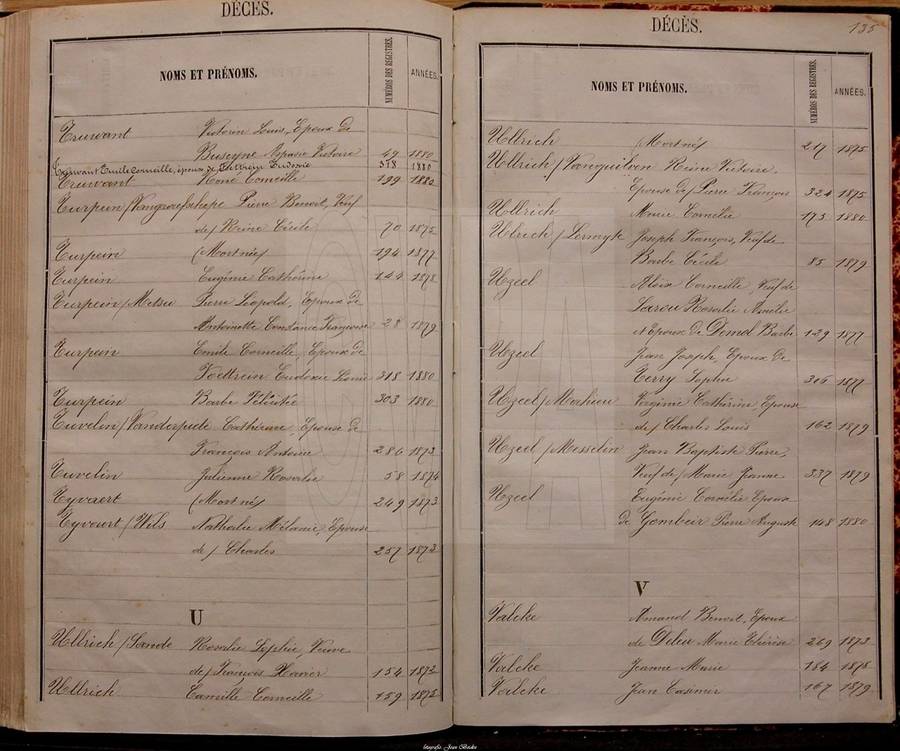 DÉCÈS.
NOMS ET PRÉNOMS. NUMÉROS DES REGISTRES. ANNÉES.
Truwant Victorin Louis, Epoux de
Buseyne Aspasie Victoire 49 1880
Truwant Emile Corneille, époux de Eudoxie 318 1880
Truwant René Corneille 199 1880
Turpein / Pierre Benoit, Veuf
de / Reine Cécile 70 1875
Turpein (Mort né) 194 1877
Turpein Eugénie Cathérine 144 1878
Turpein / Metsu Pierre Léopold, Epoux de
Antoinette Constance Françoise 28 1879
Turpein Emile Corneille, Epoux de
Eudoxie 318 1880
Turpein Barbe Félicité 303 1880
Tuvelin / Vanderpiete Cathérine, Epouse de
François Antoine 286 1873
Tuvelin Julienne Rosalie 58 1874
Tyvaert (Mort né) 249 1873
Tyvaert / Wils Nathalie Mélanie, Epouse
de / Charles 257 1873
U
Ullrich / Sande Rosalie Sophie, Veuve
de / François Xavier 154 1872
Ullrich Camille Corneille 159 1872
DÉCÈS. 135
NOMS ET PRÉNOMS. NUMÉROS DES REGISTRES. ANNÉES.
Ullrich (Mort né) 217 1875
Ullrich / Vanquilon Reine Victoire,
Epouse de / Pierre François 324 1875
Ullrich Marie Cornélie 173 1880
Ulrich / Lermyte Joseph François, Veuf de
Barbe Cécile 85 1879
Uzeel Aloïx Corneille, Veuf de
Rosalie Amélie
et Epoux de Demol Barbe 129 1877
Uzeel Jean Joseph, Epoux de
Terry Sophie 306 1877
Uzeel / Mahieu Virginie Cathérine, Epouse
de / Charles Louis 162 1879
Uzeel / Messelin Jean Baptiste Pierre
Veuf de / Marie Jeanne 337 1879
Uzeel Eugénie Cornélie Epoux
de Gombeir Pierre Auguste 148 1880
V
Valcke Amand Benoit, Epoux
de Deleu Marie Thérèse 269 1873
Valcke Jeanne Marie 184 1878
Valcke Jean Casimir 167 1879